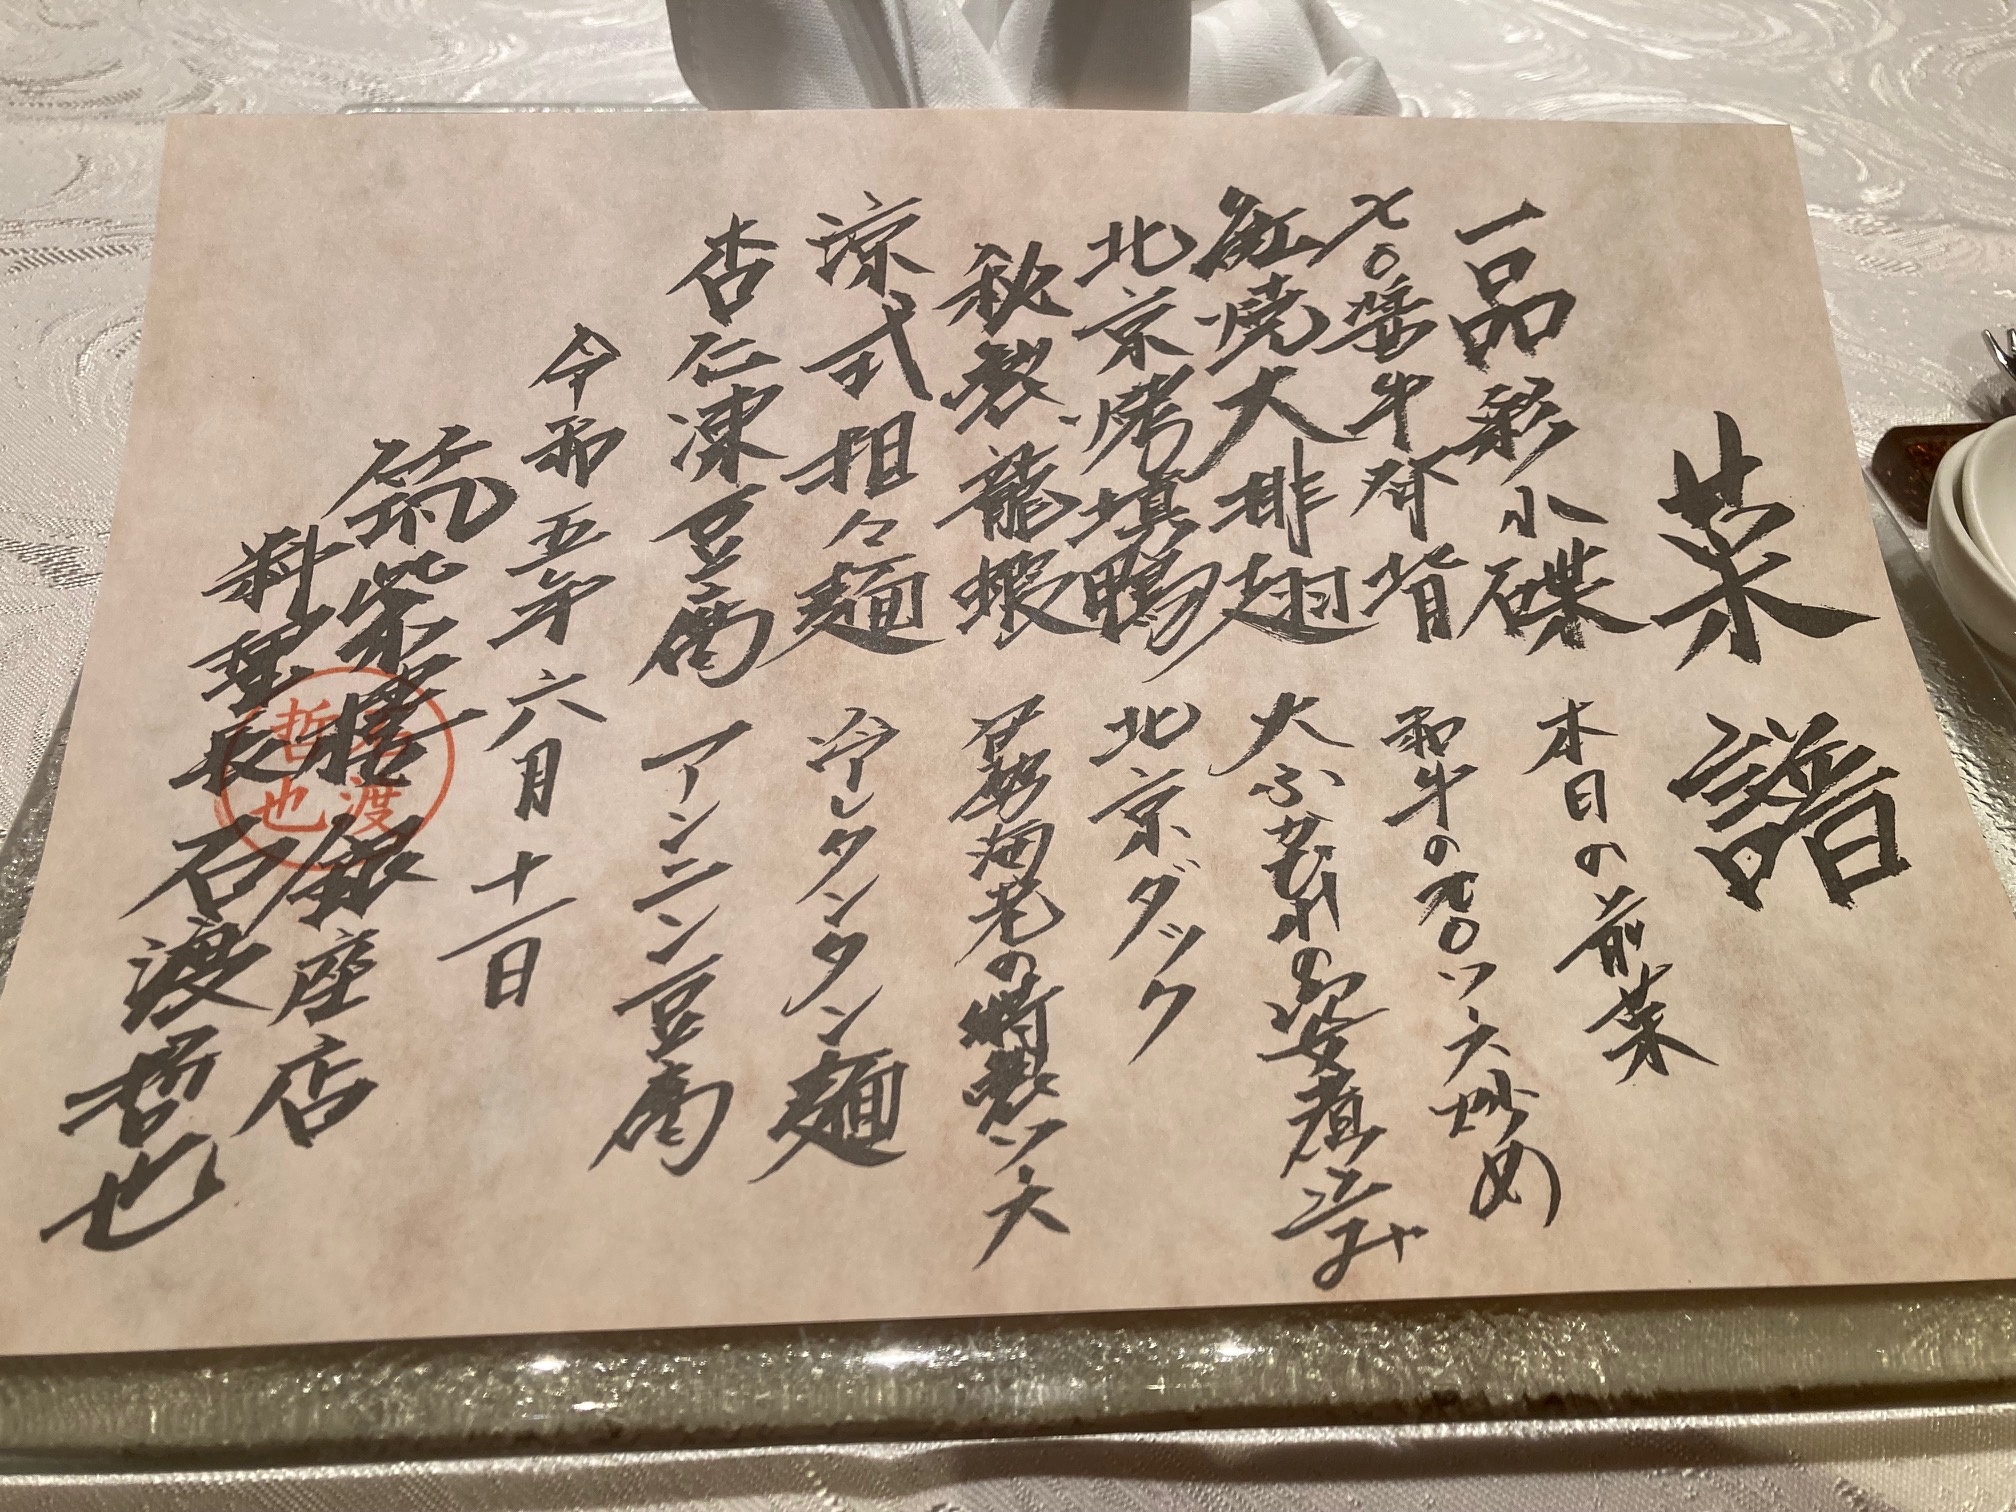 菜譜
一品彩小碟 本日の前菜
XO醬牛阿背 和牛のXOソース炒め
紅焼大排翅 大ふかひれの姿煮込み
北京烤填鴨 北京ダック
秘製龍蝦 伊勢海老の特製ソース
涼式担々麺 冷しタンタン麺
杏仁凍豆腐 アンニン豆腐
令和五年六月十一日
筑紫樓 銀座店
料理長 石渡哲也
石渡
哲也